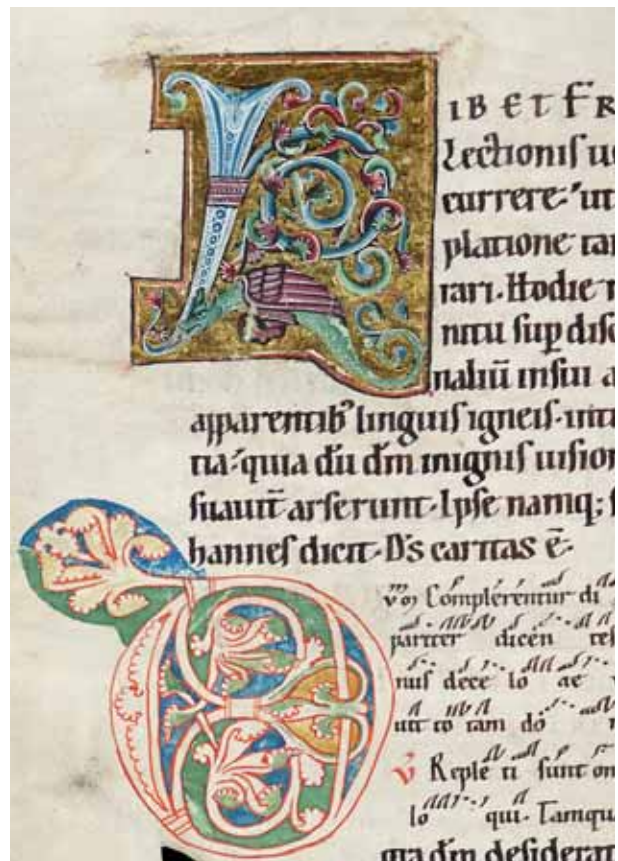 LIB ET FR
lectionis
currere ut
platione tan
rari. Hodie
nitu sup̄ disc
naliū in sui a
apparentib' linguis igneis. int
tia. quia dū dm̄ in ignis uision
suauit̄ arserunt. Ipse namq; s
hannes dicit. D̄s caritas ē.
D um Complerentur di
pariter dicen tes
nus dece lo ae
uit to tam do
V̄ Reple ti sunt om
lo qui. Tamqu
ma dm̄ desiderat